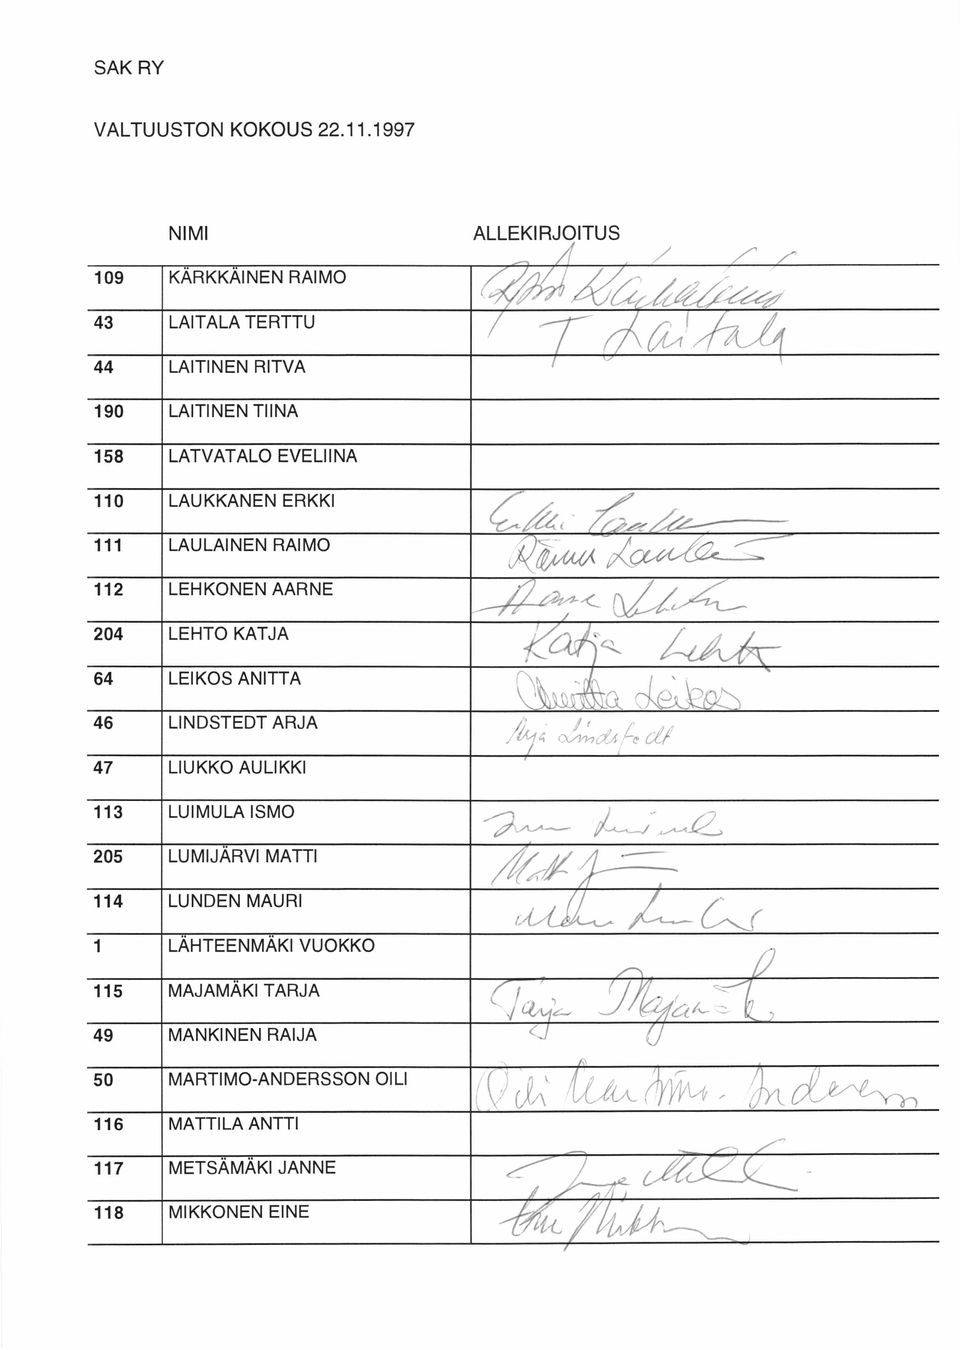 SAK RY
VALTUUSTON KOKOUS 22.11.1997
NIMI ALLEKIRJOITUS
109 KÄRKKÄINEN RAIMO
43 LAITALA TERTTU T Laitala
44 LAITINEN RITVA
190 LAITINEN TIINA
158 LATVATALO EVELIINA
110 LAUKKANEN ERKKI Erkki
111 LAULAINEN RAIMO Raimo
112 LEHKONEN AARNE Aarne
204 LEHTO KATJA Katja Lehto
64 LEIKOS ANITTA Anitta Leikos
46 LINDSTEDT ARJA Arja Lindstedt
47 LIUKKO AULIKKI
113 LUIMULA ISMO
205 LUMIJÄRVI MATTI
114 LUNDEN MAURI
1 LÄHTEENMÄKI VUOKKO
115 MAJAMÄKI TARJA Tarja
49 MANKINEN RAIJA
50 MARTIMO-ANDERSSON OILI Oili Martimo-Andersson
116 MATTILA ANTTI
117 METSÄMÄKI JANNE
118 MIKKONEN EINE